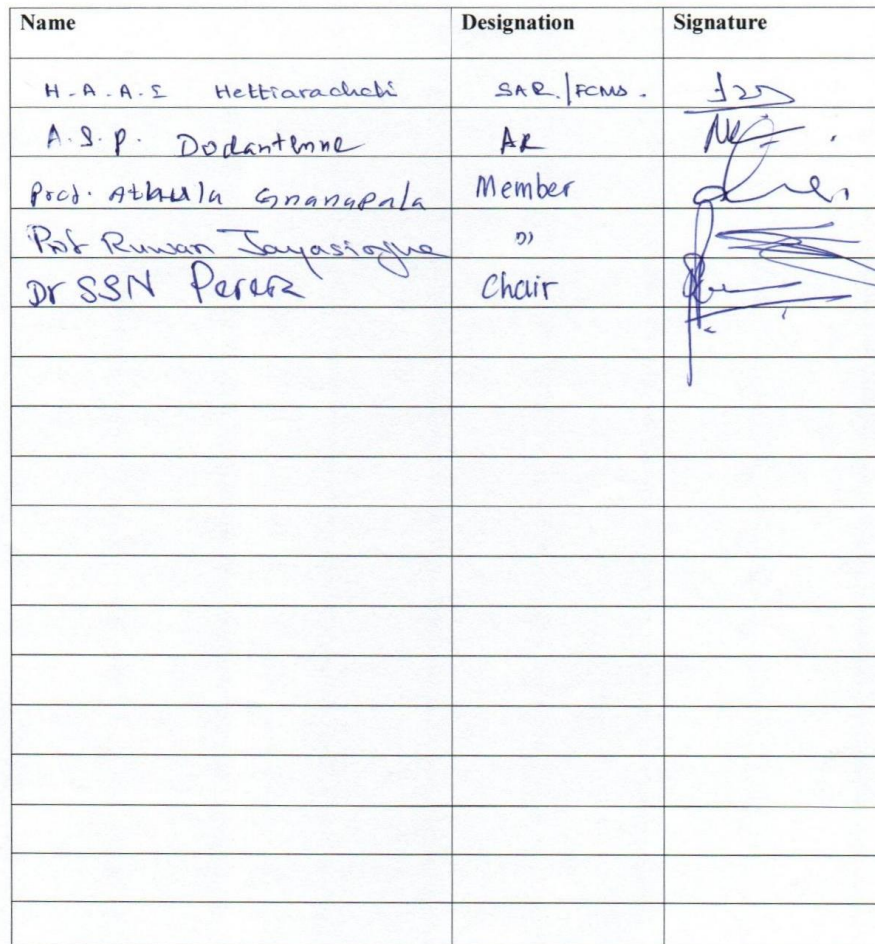 Name Designation Signature
H.A.A.S Hettiarachchi SAR./FCMS.
A.S.P. Dodantenne AR
Prof. Athula Gnanapala Member
Prof Ruwan Jayasinghe "
Dr SSN Perera Chair